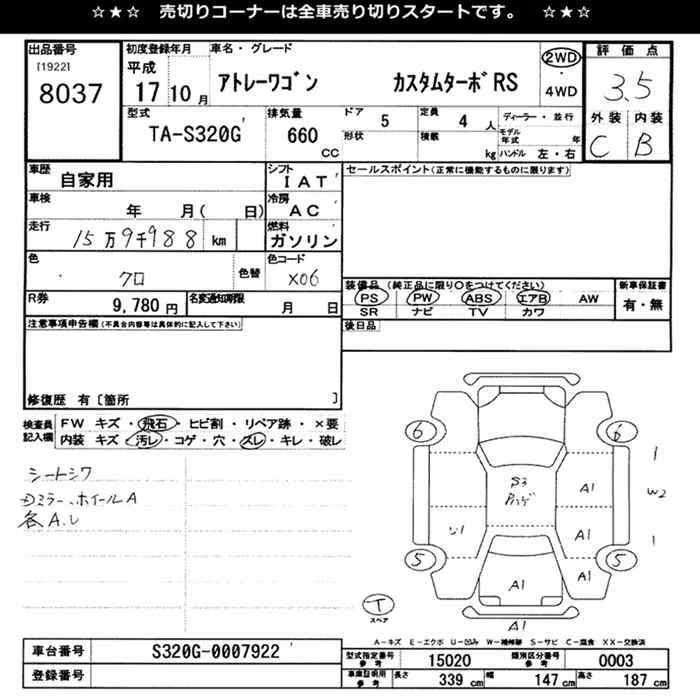 ☆★☆　売切りコーナーは全車売り切りスタートです。　☆★☆
出品番号
[1922]
8037
初度登録年月
平成
17 10 月
車名・グレード
アトレーワゴン　カスタムターボRS
2WD
・
4WD
評価点
3.5
外装 内装
C B
型式
TA-S320G
排気量
660
CC
ドア 5
形状
定員 4 人
積載 kg
ディーラー・並行
モデル年式 年
ハンドル 左・右
車歴
自家用
シフト
IAT
セールスポイント(正常に機能するものに限ります)
車検
年 月( 日)
冷房
AC
走行
15万9千988 km
燃料
ガソリン
色
クロ
色替
色コード
X06
装備品 (純正品に限り○をつけてください)
PS PW ABS エアB AW
SR ナビ TV カワ
新車保証書
有・無
R券
9,780 円
名変通知期限
月 日
後日品
注意事項申告欄(不具合内容等は具体的に記入して下さい)
修復歴 有 [箇所 ]
検査員記入欄
FW キズ・飛石・ヒビ割・リペア跡・×要
内装 キズ・汚レ・コゲ・穴・スレ・キレ・破レ
シートシワ
ミラー、ホイールA
各A.
6 6
1
S3
A1
W2
A1
1
5 5
A1
A1 A1
T
スペア
A1
A-キズ E-エクボ U-凹み W-補修跡 S-サビ C-腐食 XX-交換済
車台番号
S320G-0007922
登録番号
型式指定番号
参考
15020
類別区分番号
参考
0003
車庫証明用
参考
長さ 339 cm 幅 147 cm 高さ 187 cm